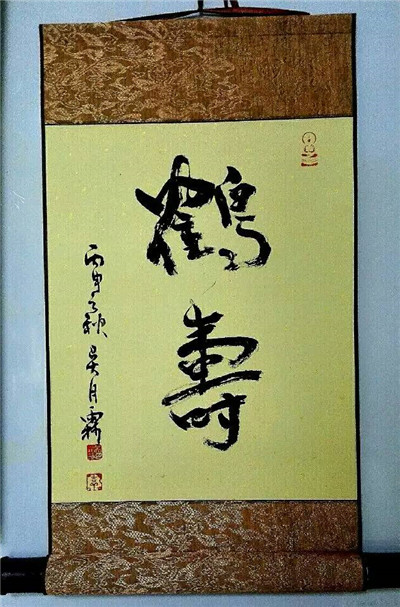 鶴壽
丙申之秋吴月霖